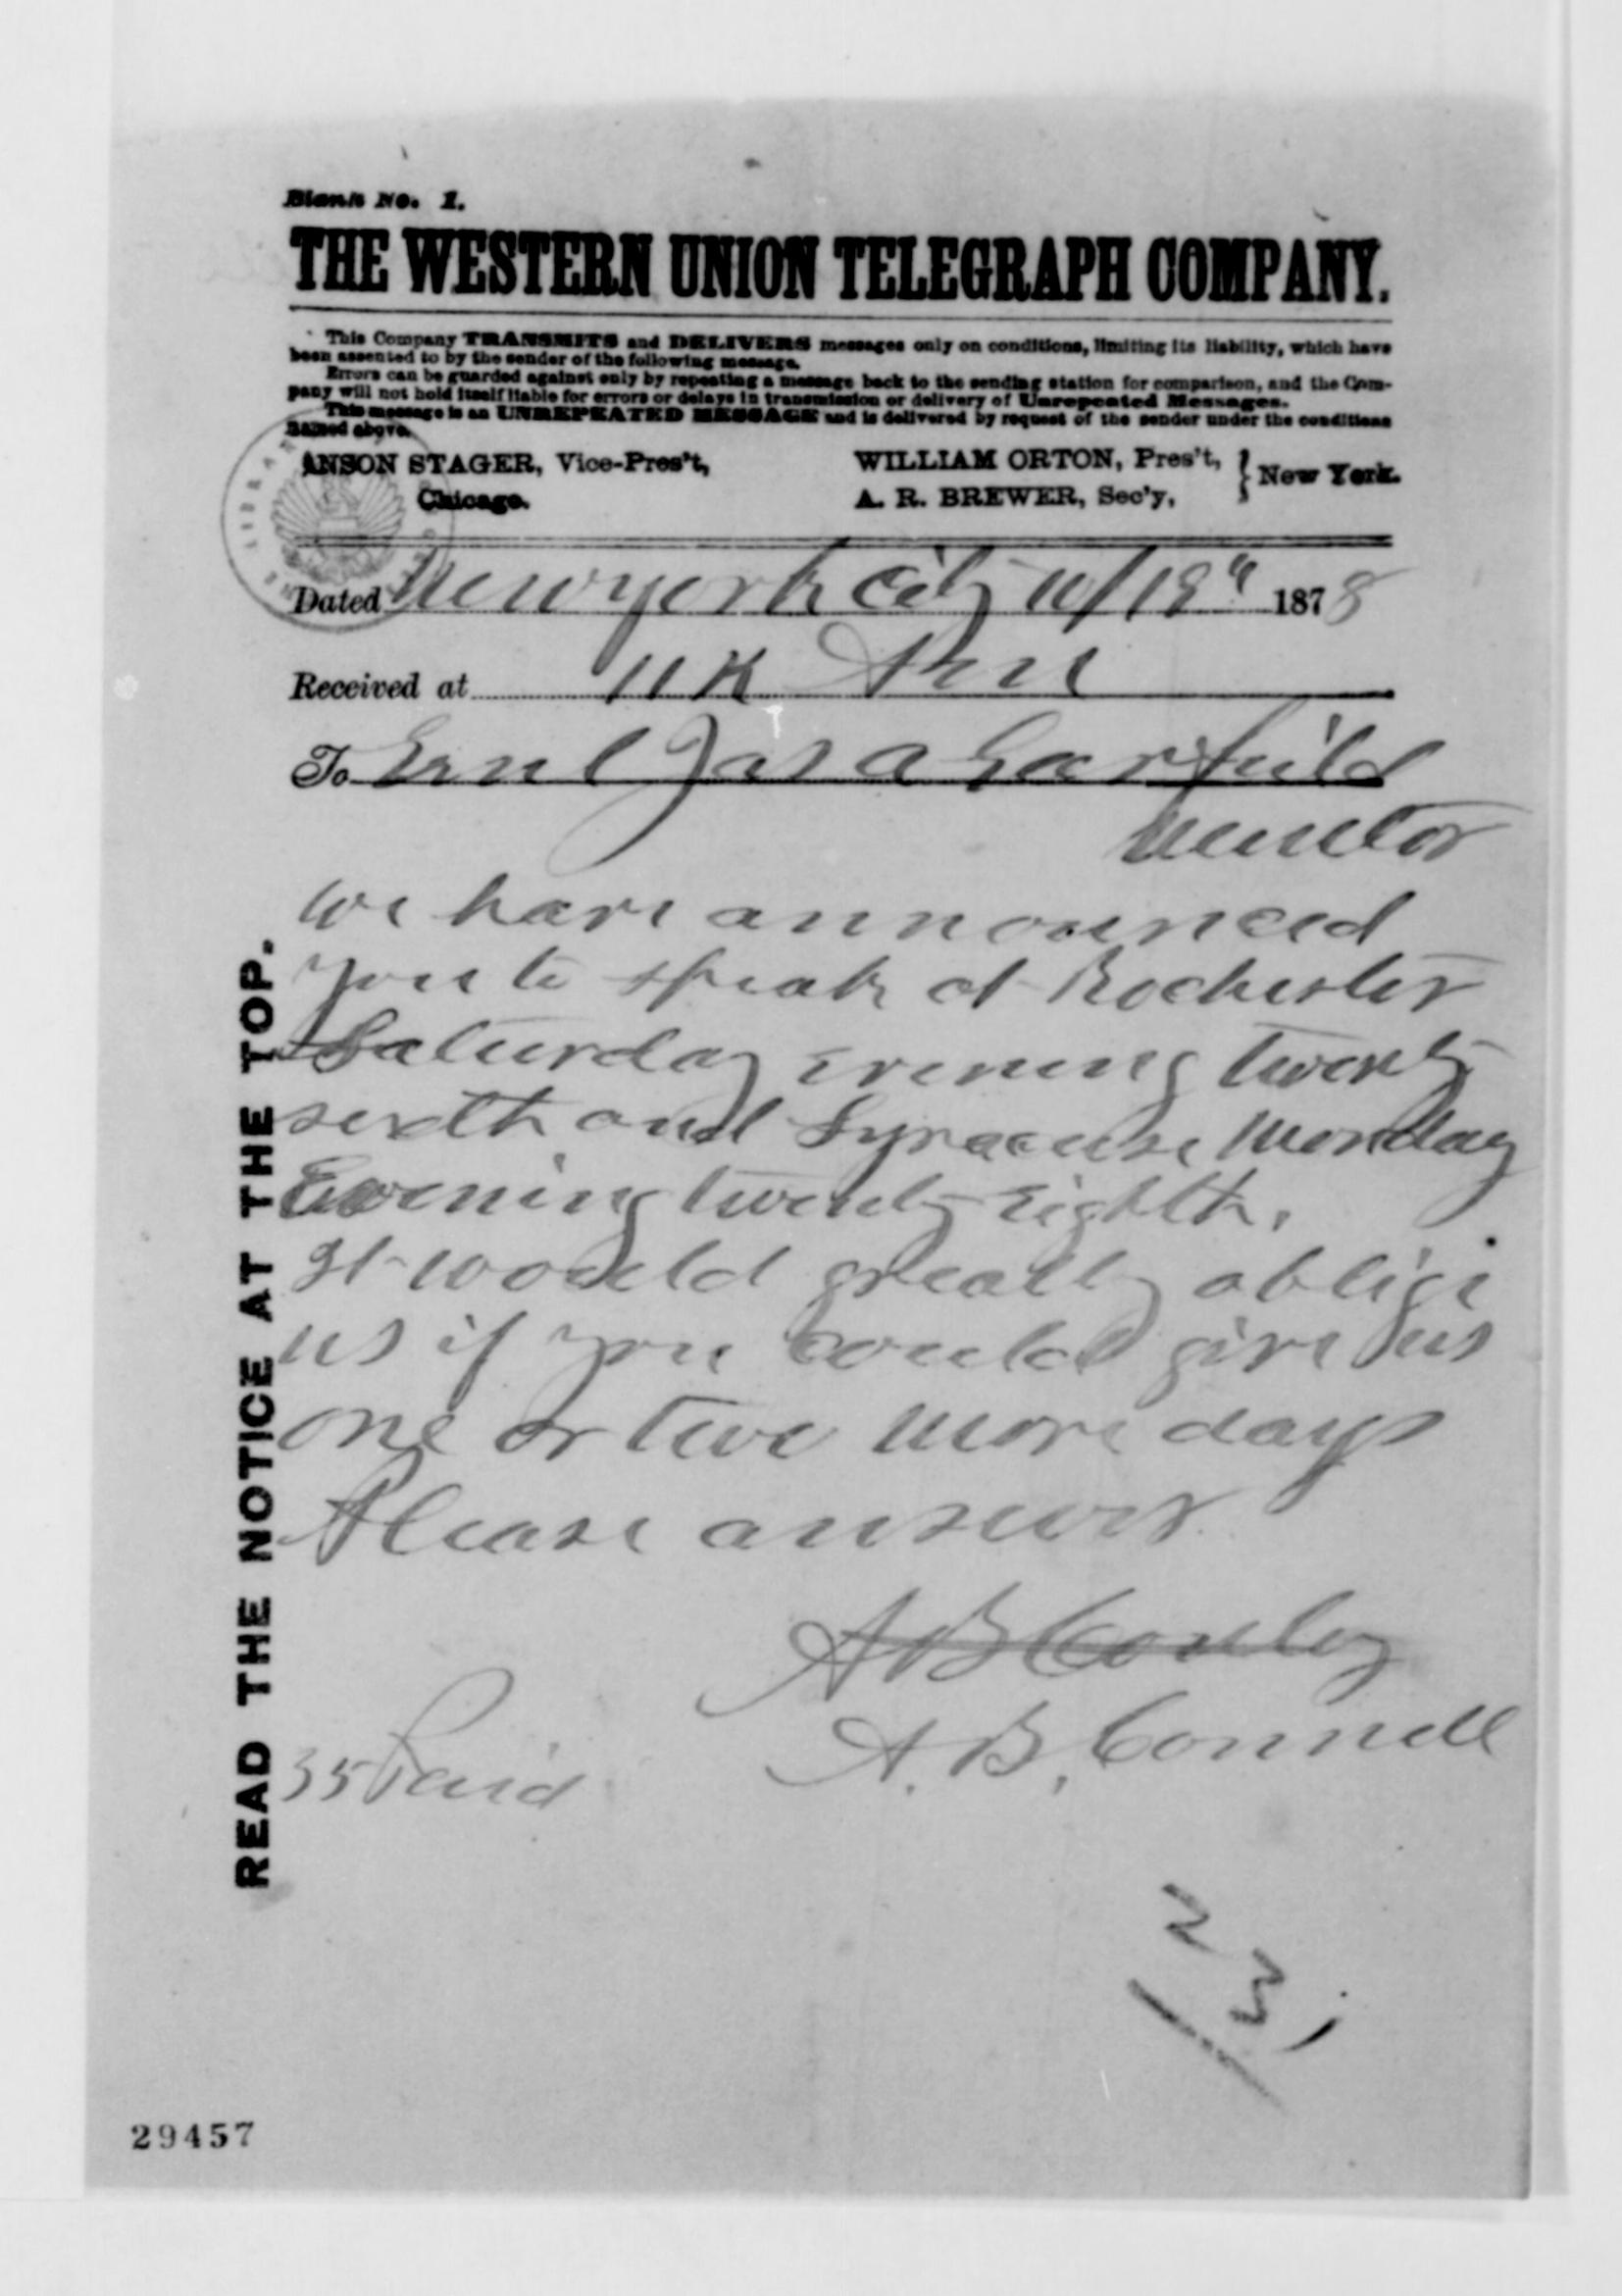 Blank No. 1.
THE WESTERN UNION TELEGRAPH COMPANY.
This Company TRANSMITS and DELIVERS messages only on conditions, limiting its liability, which have
been assented to by the sender of the following message.
Errors can be guarded against only by repeating a message back to the sending station for comparison, and the Com-
pany will not hold itself liable for errors or delays in transmission or delivery of Unrepeated Messages.
This message is an UNREPEATED MESSAGE and is delivered by request of the sender under the conditions
named above.
ANSON STAGER, Vice-Pres't,
Chicago.
WILLIAM ORTON, Pres't,
A. R. BREWER, Sec'y,
New York.
Dated New York City 10/18" 1878
Received at 11 K
To Genl Jas A Garfield
Mentor
We have announced
you to speak at Rochester
Saturday evening twenty
sixth and Syracuse Monday
Evening twenty eighth.
It would greatly oblige
us if you could give us
one or two more days
Please answer
A B Conley
A. B. Connell
35 Paid
READ THE NOTICE AT THE TOP.
23
29457